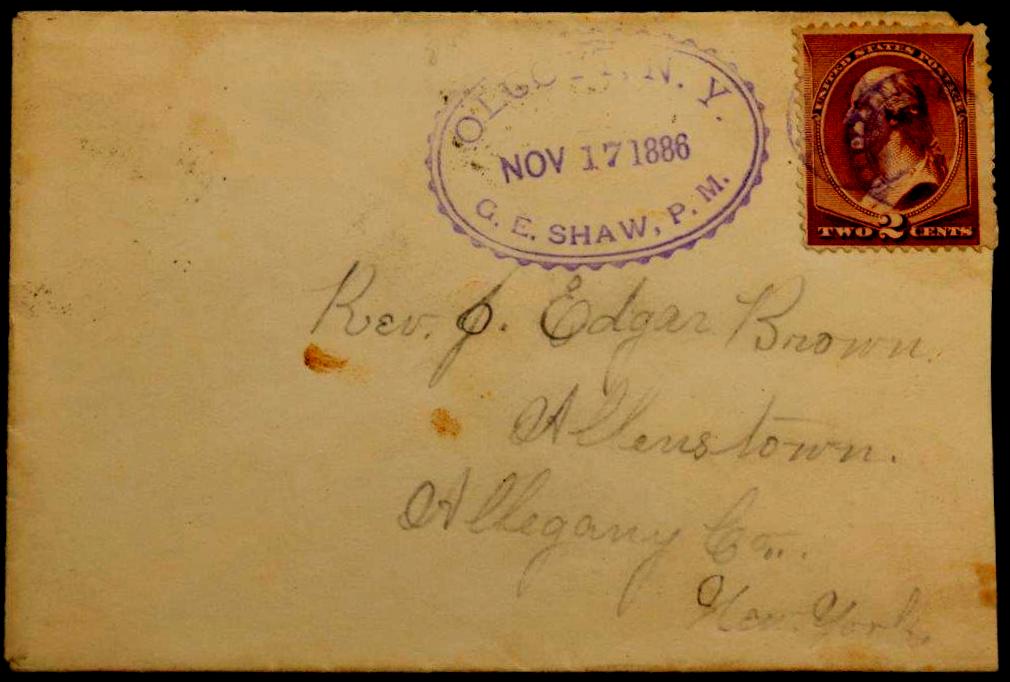 N. Y.
NOV 17 1886
G. E. SHAW, P. M.
UNITED STATES POSTAGE
TWO 2 CENTS
Rev. J. Edgar Brown.
Allenstown.
Allegany Co.
New York.